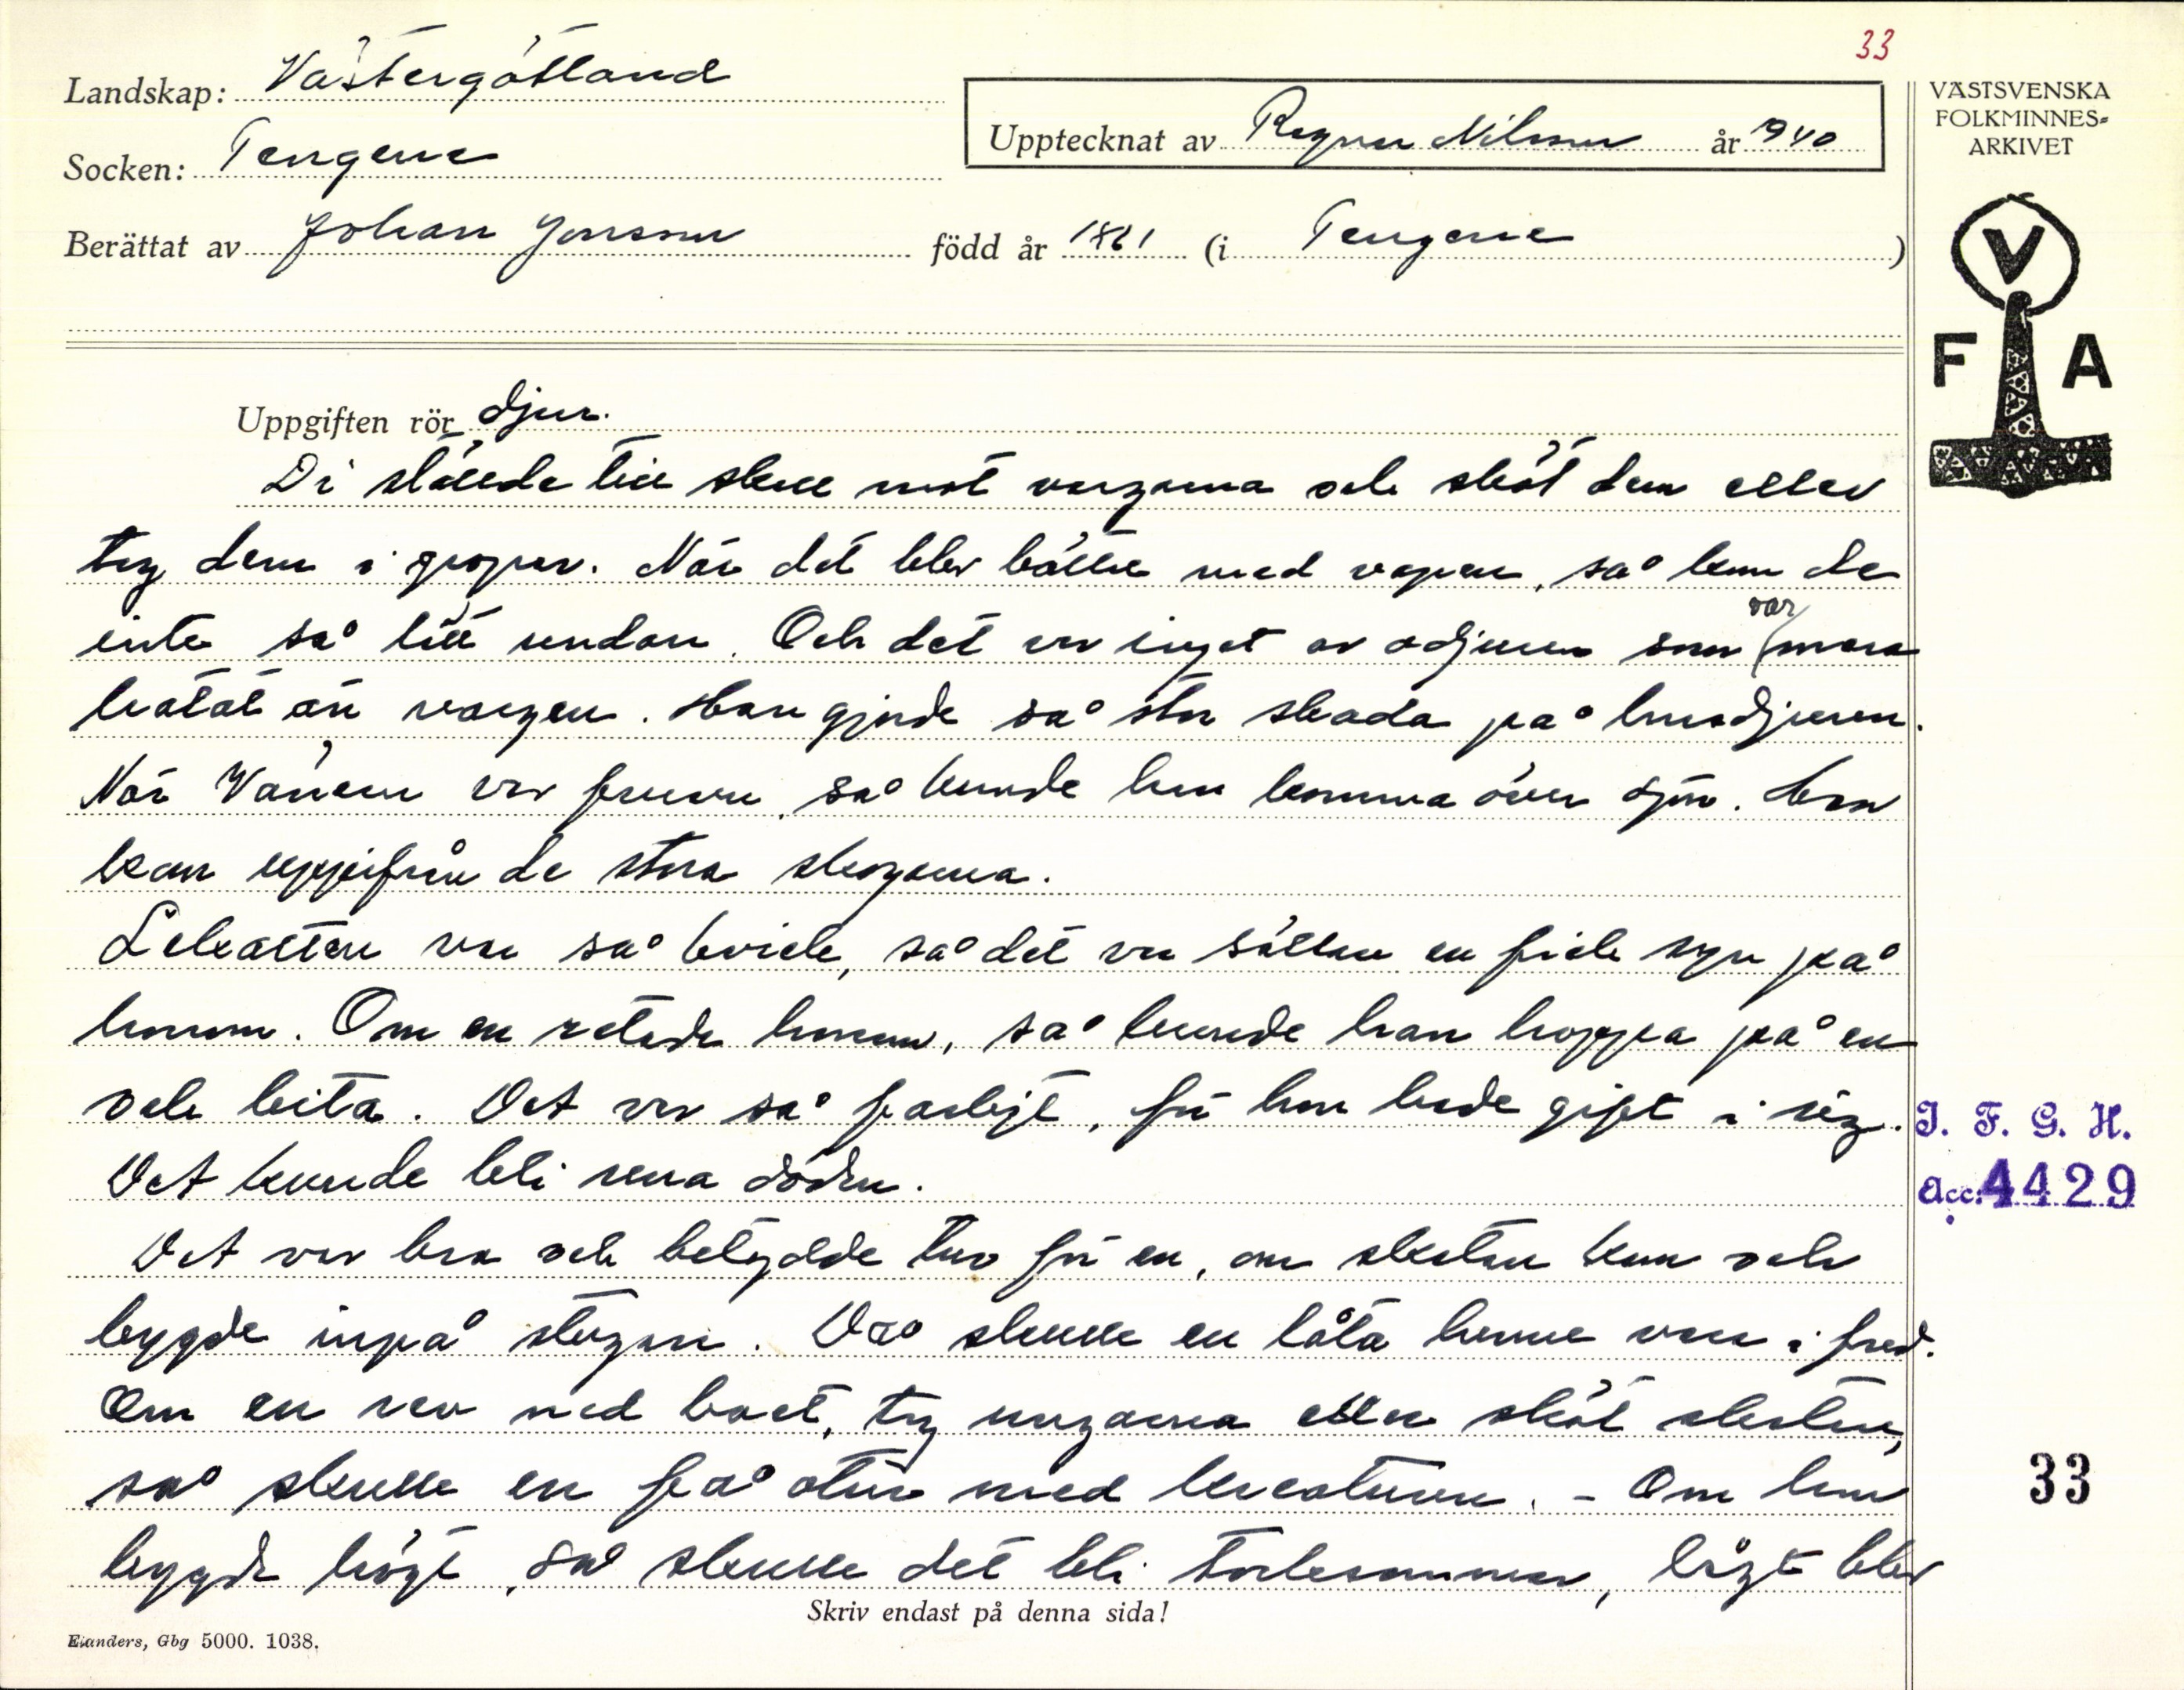 33
Landskap: Västergötland
Socken: Tengene
Upptecknat av Ragnar Nilsson år 1940
Berättat av Johan Jonsson född år 1861 (i Tengene)
VÄSTSVENSKA
FOLKMINNES-
ARKIVET
V
F A
Uppgiften rör djur.
Di ställde till skall mot vargarna och sköt dem eller
tog dem i gropar. När det blev bättre med vapen, så kom de
inte så lätt undan. Och det var inget av odjuren som var mera
hatat än vargen. Han gjorde så stor skada på husdjuren.
När Vänern var frusen, så kunde han komma över sjön. Han
kom uppifrån de stora skogarna.
Lekatten var så kvick, så det var sällan en fick syn på
honom. Om en retade honom, så kunde han hoppa på en
och bita. Det var så farligt, för han hade gift i sig.
Det kunde bli rena döden.
Det var bra och betydde tur för en, om skatan kom och
byggde inpå stugan. Då skulle en låta henne vara i fred.
Om en rev ned boet, tog ungarna eller sköt skatan,
så skulle en få otur med kreaturen. - Om hon
byggde högt, så skulle det bli torksommar, lågt blev
J. F. G. H.
Acc: 4429
33
Skriv endast på denna sida!
Elanders, Gbg 5000. 1038.